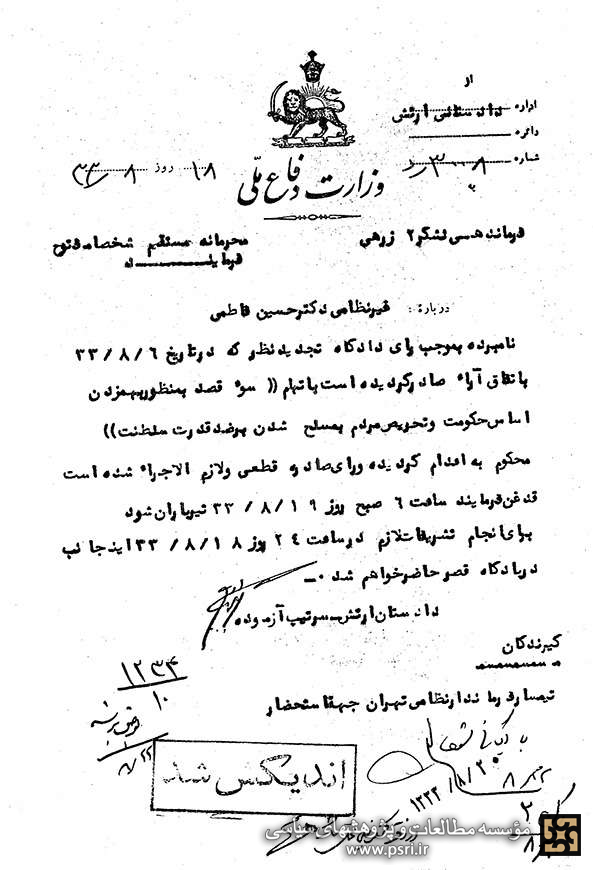 از
اداره دادستانی ارتش
دائره
شماره
۱۸ روز ۸
وزارت دفاع ملّی
فرماندهی لشگر ۲ زرهی
محرمانه مستقیم شخصا مفتوح
فرمایند
درباره: غیرنظامی دکتر حسین فاطمی
نامبرده بموجب رای دادگاه تجدیدنظر که در تاریخ ۳۳/۸/۶
باتفاق آراء صادر گردیده است باتهام ((سوء قصد بمنظور بهمزدن
اساس حکومت و تحریص مردم بمسلح شدن بر ضد قدرت سلطنت))
محکوم به اعدام گردیده و رای صادره قطعی و لازم الاجراء شده است
قدغن فرمایند ساعت ۶ صبح روز ۳۳/۸/۱۹ تیرباران شود
برای انجام تشریفات لازم در ساعت ۲۴ روز ۳۳/۸/۱۸ اینجانب
در پادگان قصر حاضر خواهم شد ۰ـ
دادستان ارتش ـ سرتیپ آزموده
گیرندگان
تیمسار فرماندار نظامی تهران جهة استحضار
۱۲۳۴
۱۰
اندیکس شد
۱۳۳۳/۸/۲۰
مؤسسه مطالعات و پژوهشهای سیاسی
www.psri.ir